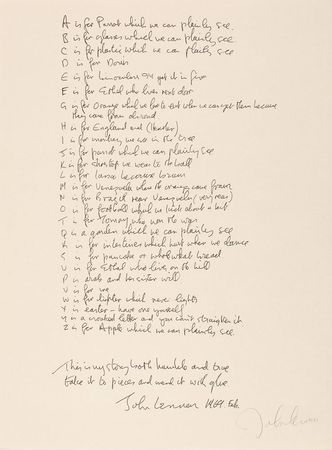 A is for Parrot which we can plainly see
B is for glasses which we can plainly see
C is for plastic which we can plainly see
D is for Doris
E is for binoculars I'll get it in five
F is for Ethel who lives next door
G is for Orange which we love to eat when we can get them because
they come from abroad
H is for England and (Heather)
I is for monkey we see in the tree
J is for parrot which we can plainly see
K is for shoetop we wear to the ball
L is for Land because brown
M is for Venezuela where the oranges come from
N is for Brazil near Venezuela (very near)
O is for football which we kick about a bit
T is for Tommy who won the war
Q is a garden which we can plainly see
R is for intestines which hurt when we dance
S is for pancake or whole wheat bread
U is for Ethel who lives on the hill
P is arab and her sister will
V is for me
W is for lighter which never lights
X is easter - have one yourself
Y is a crooked letter and you can't straighten it
Z is for Apple which we can plainly see
This is my story both humble and true
take it to pieces and mend it with glue
John Lennon 1969 Feb.
John Lennon